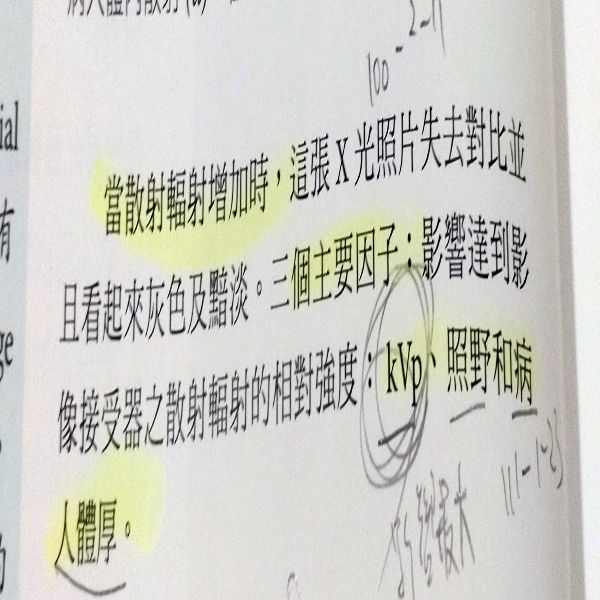 病人體內散射
100-2-11
ial
當散射輻射增加時，這張 X 光照片失去對比並
有
且看起來灰色及黯淡。三個主要因子：影響達到影
ge
像接受器之散射輻射的相對強度：kVp、照野和病
影響最大
111-1-23
人體厚。